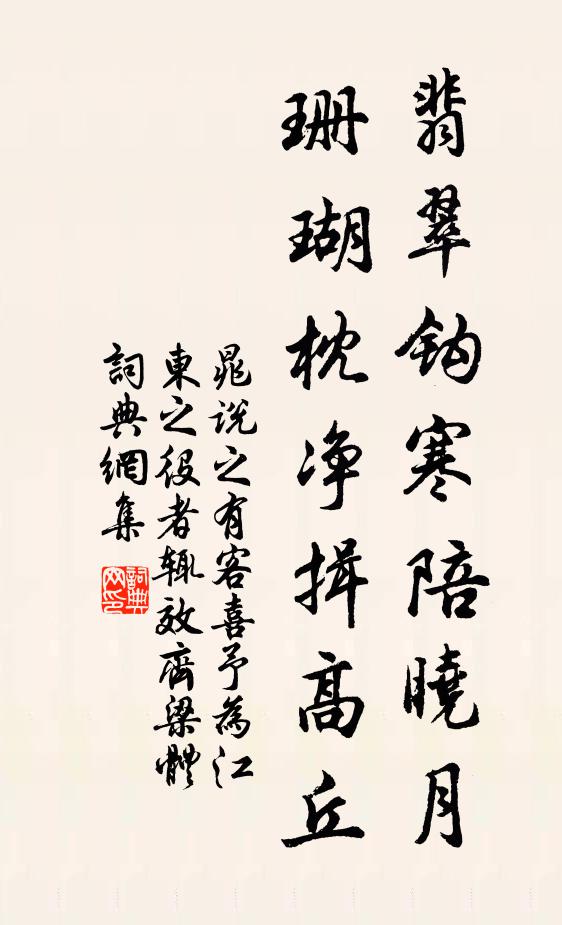 翡翠鈎寒陪曉月
珊瑚枕净揖高丘
晁説之有客喜予為江
東之役者輒效齊梁體
詞典網集
詞典網印